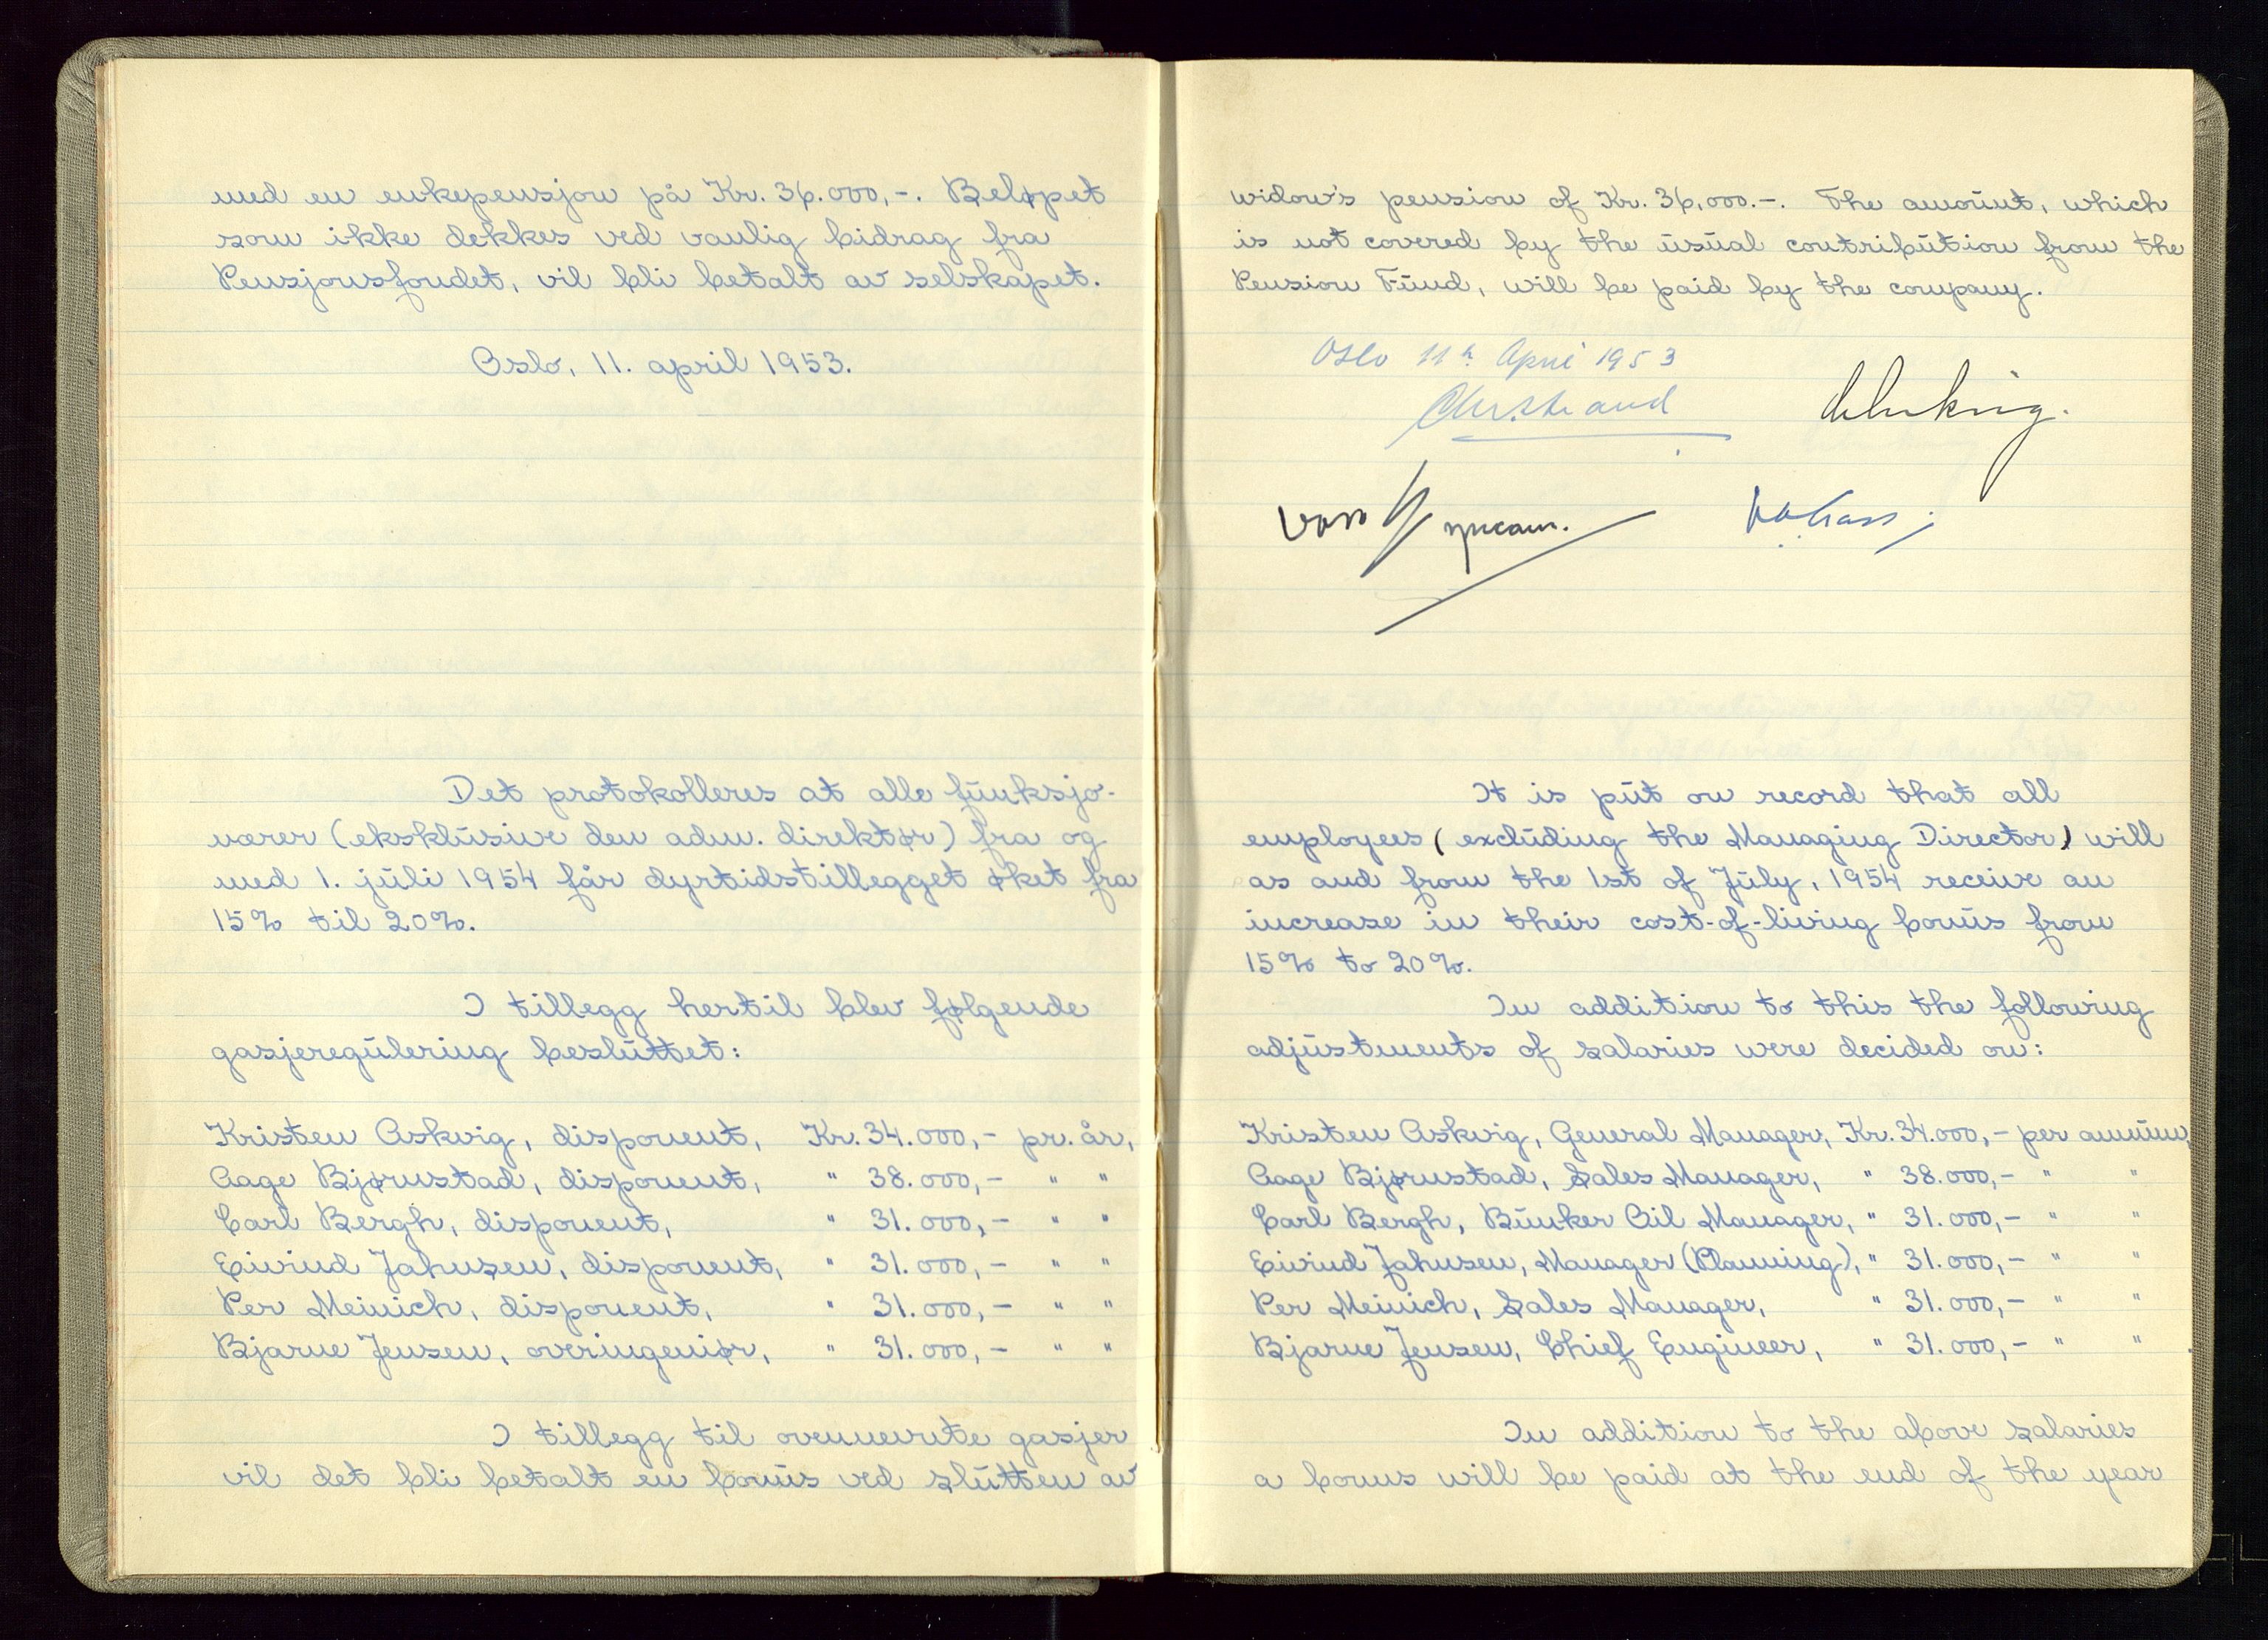 med en enkepensjon på Kr. 36.000,-. Beløpet
som ikke dekkes ved vanlig bidrag fra
Pensjonsfondet, vil bli betalt av selskapet.
Oslo, 11. april 1953.
Det protokolleres at alle funksjo-
nærer (eksklusive den adm. direktør) fra og
med 1. juli 1954 får dyrtidstillegget øket fra
15% til 20%.
I tillegg hertil blev følgende
gasjeregulering besluttet:
Kristen Askvig, disponent, Kr. 34.000,- pr. år,
Aage Bjørnstad, disponent, " 38.000,- " "
Carl Bergh, disponent, " 31.000,- " "
Eivind Jahnsen, disponent, " 31.000,- " "
Per Meinich, disponent, " 31.000,- " "
Bjarne Jensen, overingeniør, " 31.000,- " "
I tillegg til ovennevnte gasjer
vil det bli betalt en bonus ved slutten av
widow's pension of Kr. 36,000.-. The amount, which
is not covered by the usual contribution from the
Pension Fund, will be paid by the company.
Oslo 11th April 1953
It is put on record that all
employees (excluding the Managing Director) will
as and from the 1st of July, 1954 receive an
increase in their cost-of-living bonus from
15% to 20%.
In addition to this the following
adjustments of salaries were decided on:
Kristen Askvig, General Manager, Kr. 34.000,- per annum,
Aage Bjørnstad, Sales Manager, " 38.000,- " "
Carl Bergh, Bunker Oil Manager, " 31.000,- " "
Eivind Jahnsen, Manager (Planning), " 31.000,- " "
Per Meinich, Sales Manager, " 31.000,- " "
Bjarne Jensen, Chief Engineer, " 31.000,- " " .
In addition to the above salaries
a bonus will be paid at the end of the year